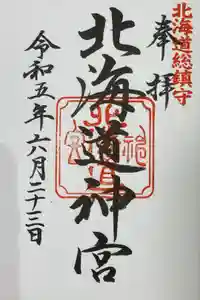 北海道総鎮守
奉拝
北海道神宮
令和五年六月二十三日